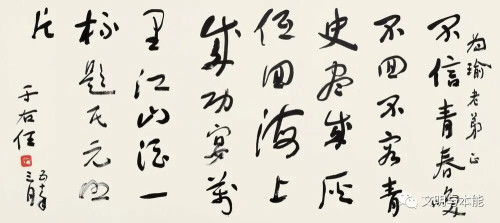 為瑜老弟正
不信青春喚
不回不容青
史盡成灰
低回海上
成功宴萬
里江山酒一
杯題民元照
片
于右任
三月
文明与本能